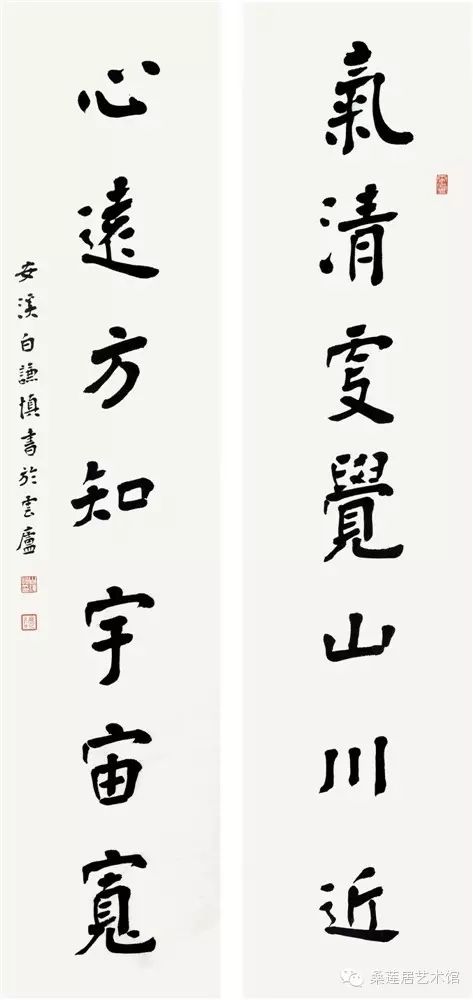 氣清覺山川近
心遠方知宇宙寬
安溪白謙慎書於雲廬
桑莲居艺术馆